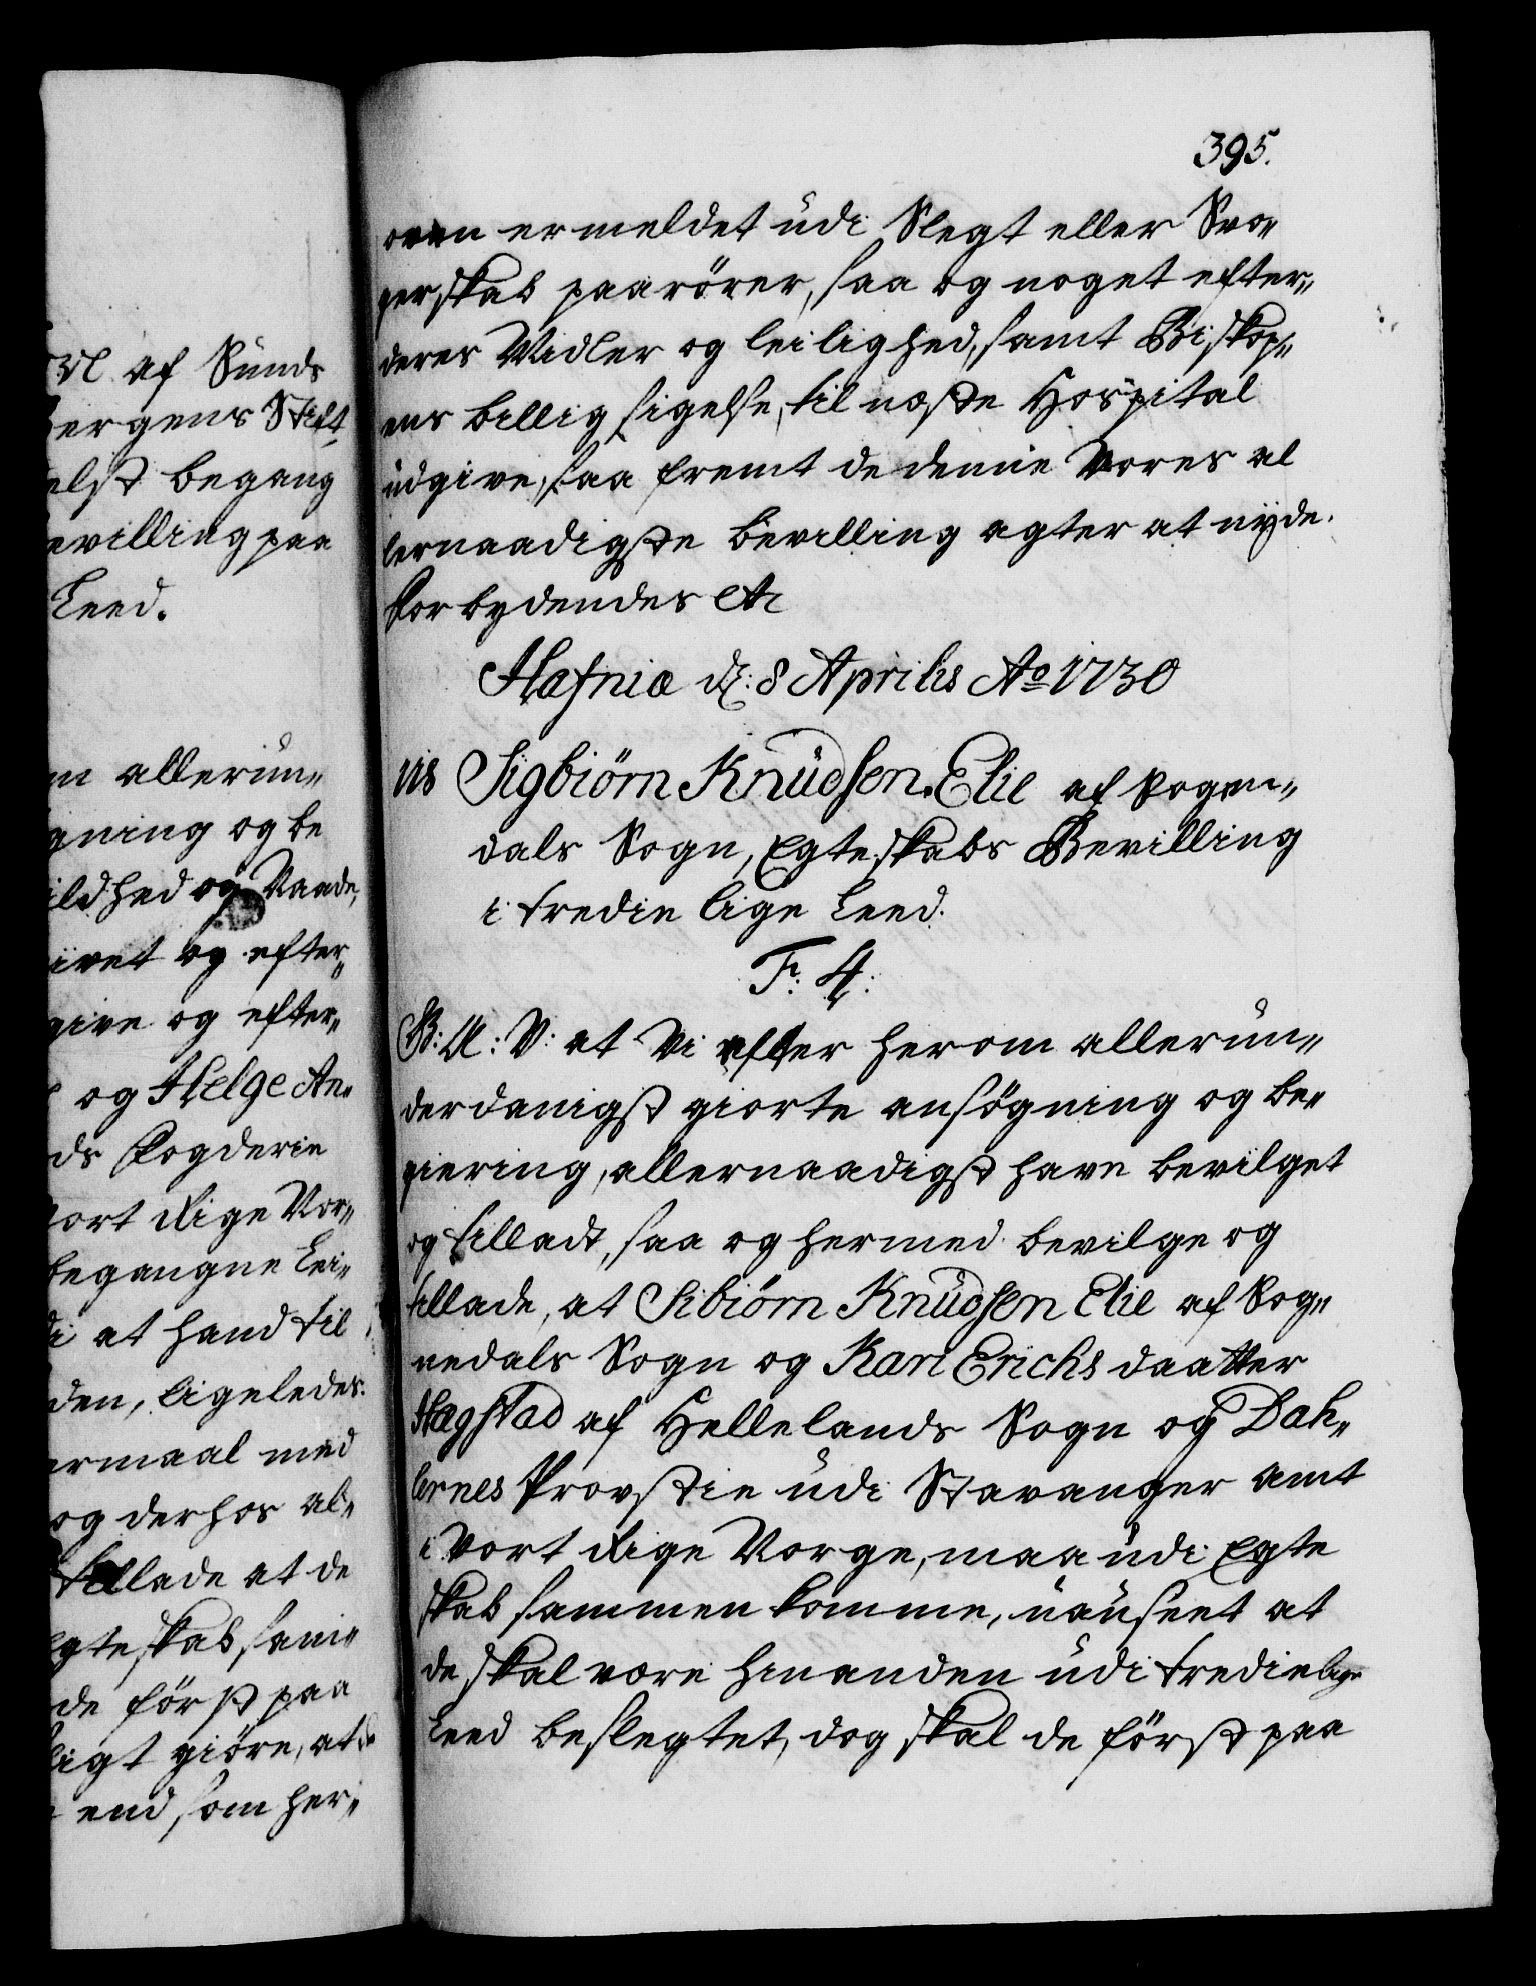 395.
oven ermeldet udi Slegt eller Svo„
gerskab paarörer, saa og noget efter„
deres Midler og leilighed, samt Biskop„
ens billig sigelse, til næste Hospital
udgive, saa fremt de denne Vores al
lernaadigste bevilling agter at nyde.
Forbydendes etc
Hafniæ d: 8 Aprilis Ao 1730
118 Sigbiörn Knudsen Elie af Sogn„
dals Sogn, Egteskabs Bevilling
i tredie lige Leed.
F: 4:
G: A: V: at Vi efter herom allerun„
derdanigst giorte ansögning og be„
giering, allernaadigst have bevilget
og tilladt, saa og hermed bevilge og
tillade, at Sibiörn Knudsen Elie af Sog„
nedals Sogn og Kari Erichs daatter
Hægstad af Hellelands Sogn og Dah„
lernes Provstie udi Stavanger Amt
i Vort Rige Norge, maa udi Egte
skab sammen komme, uanseet at
de skal være hinanden udi tredie lige
Leed beslegtet, dog skal de först paa
af Sunds
ergens Stift,
elst begang
evilling paa
Leed.
m allerun„
gning og be
ildhed og Naade,
ivet og efter„
give og efter„
og Helge An„
ds Fogderie
Vort Rige Nor„
begangne Lei„
di at hand til
den, ligeledes
ermaal med
og derhos al„
tillade at de
Egteskab sam„
de först paa
ligt giöre, at de
end som her„